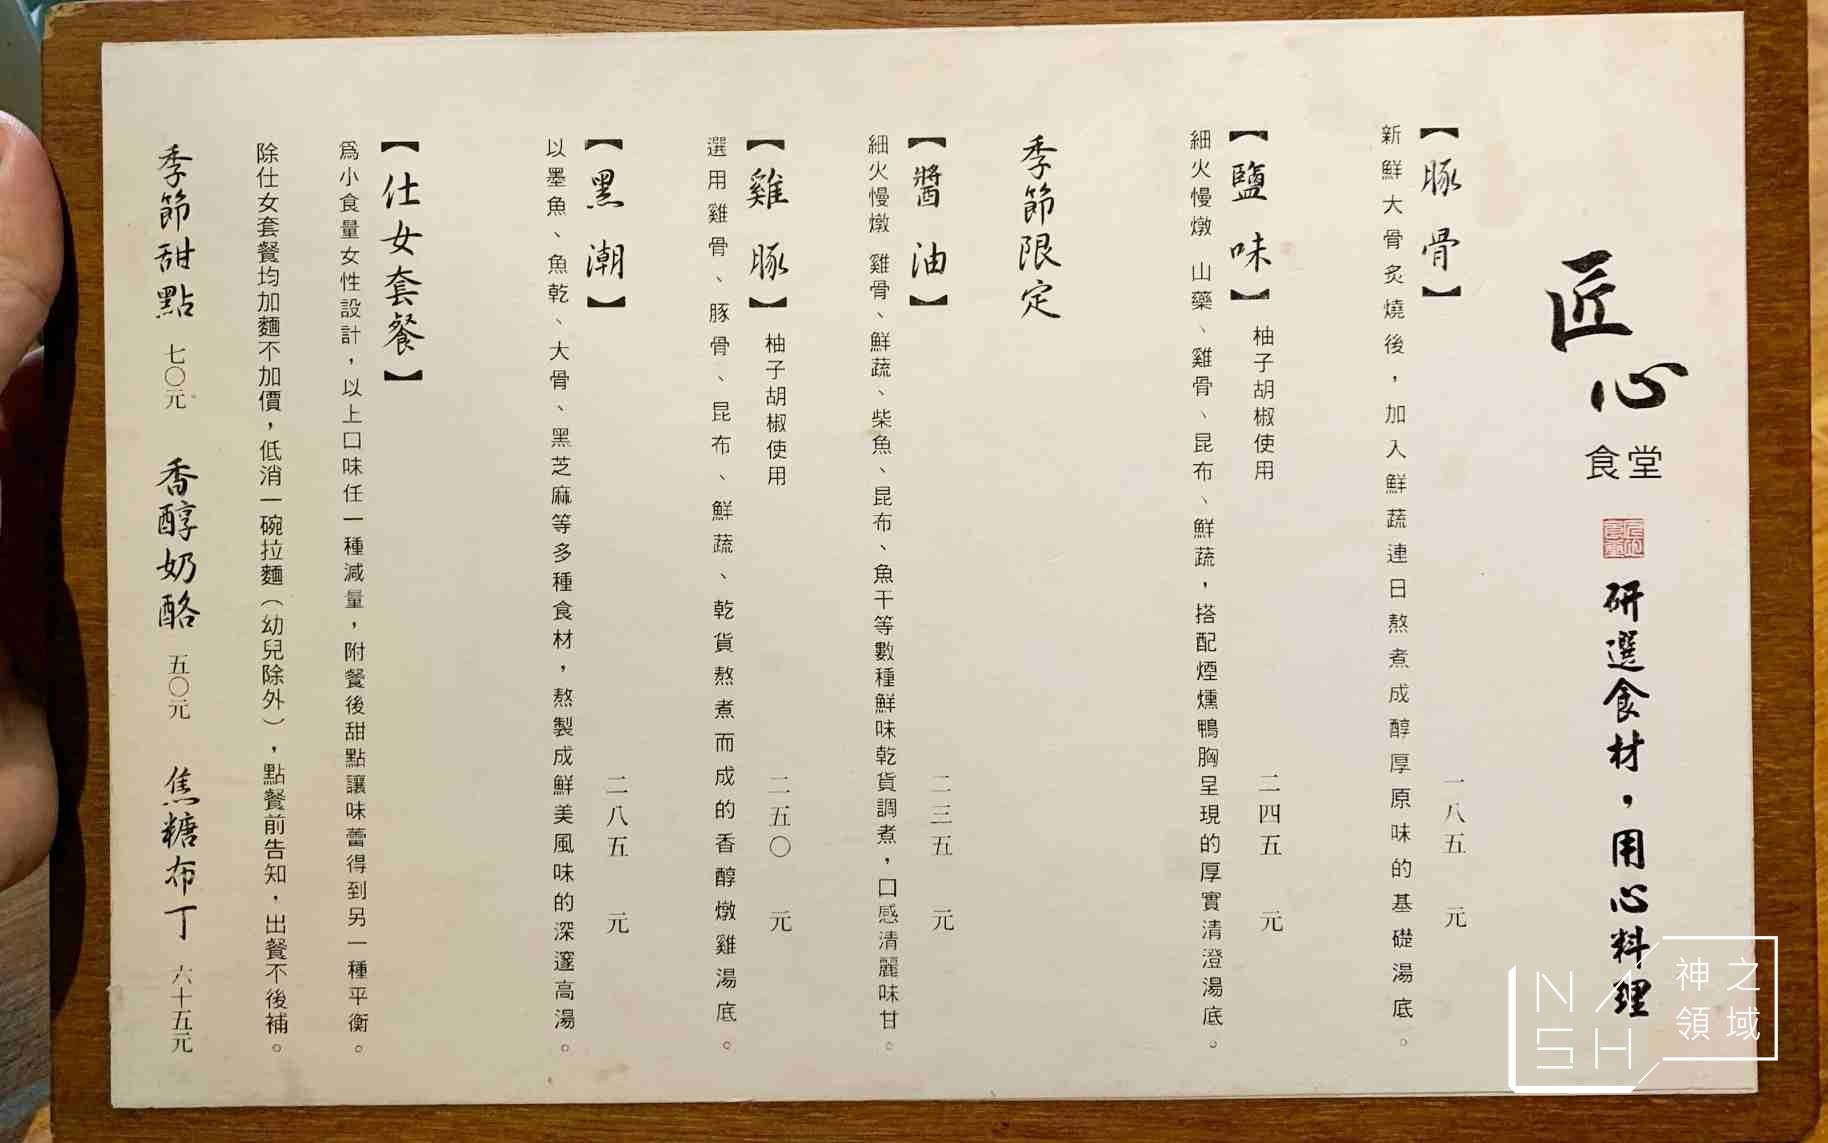 匠心
食堂
研選食材，用心料理
【豚骨】 一八五 元
新鮮大骨炙燒後，加入鮮蔬連日熬煮成醇厚原味的基礎湯底。
【鹽味】 柚子胡椒使用 二四五 元
細火慢燉 山藥、雞骨、昆布、鮮蔬，搭配煙燻鴨胸呈現的厚實清澄湯底。
季節限定
【醬油】 二三五 元
細火慢燉 雞骨、鮮蔬、柴魚、昆布、魚干等數種鮮味乾貨調煮，口感清麗味甘。
【雞豚】 柚子胡椒使用 二五〇 元
選用雞骨、豚骨、昆布、鮮蔬、乾貨熬煮而成的香醇燉雞湯底。
【黑潮】 二八五 元
以墨魚、魚乾、大骨、黑芝麻等多種食材，熬製成鮮美風味的深邃高湯。
【仕女套餐】
為小食量女性設計，以上口味任一種減量，附餐後甜點讓味蕾得到另一種平衡。
除仕女套餐均加麵不加價，低消一碗拉麵（幼兒除外），點餐前告知，出餐不後補。
季節甜點 七〇元 香醇奶酪 五〇元 焦糖布丁 六十五元
NASH
神之
領域